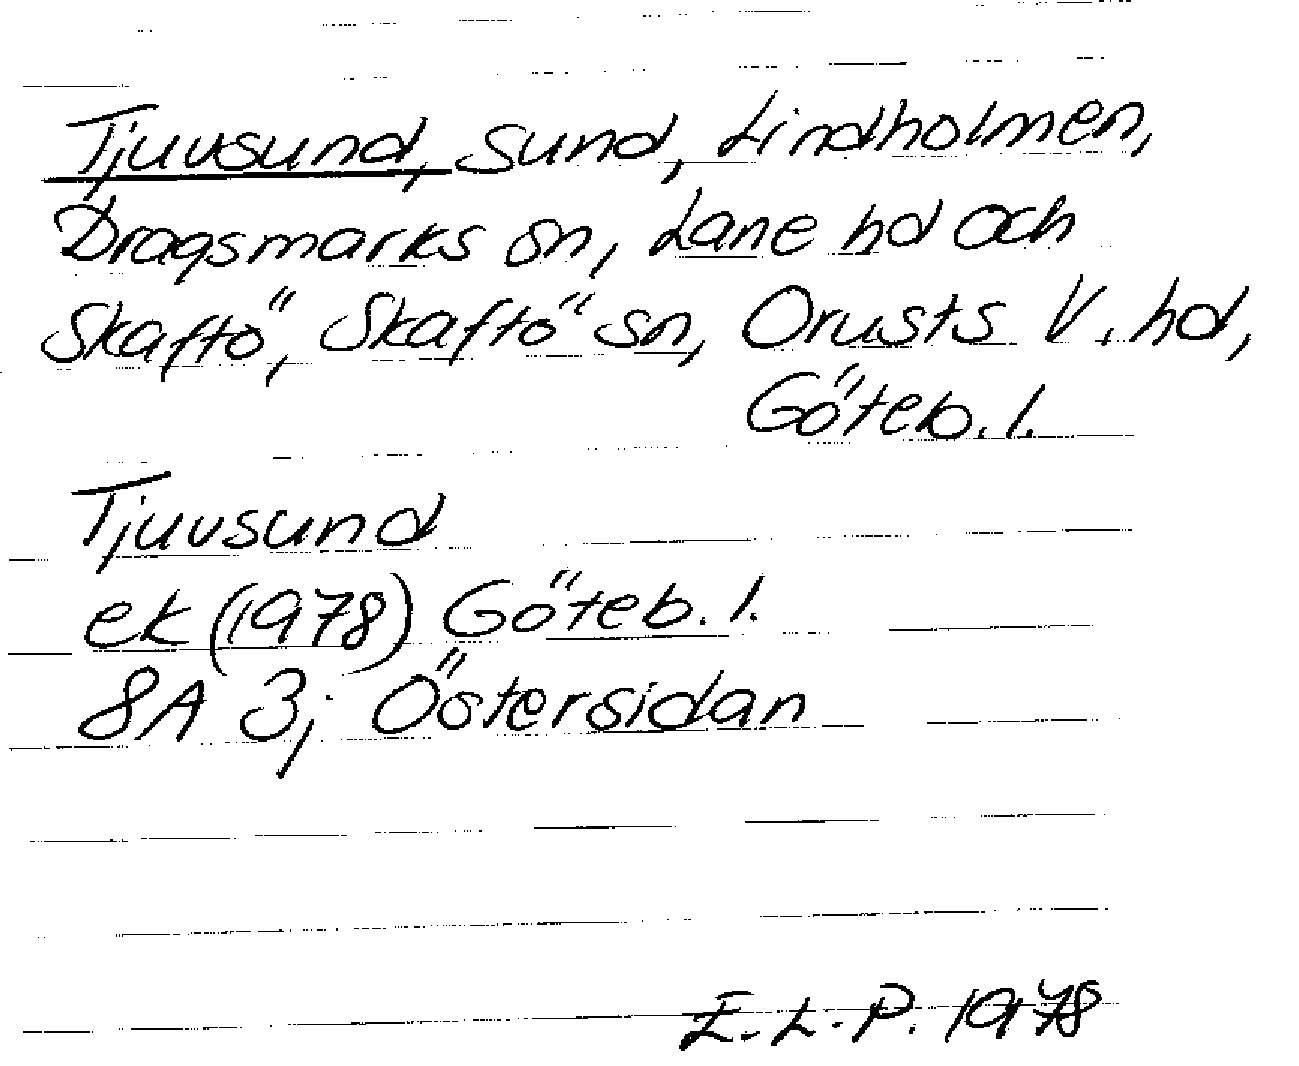 Tjuvsund, sund, Lindholmen,
Dragsmarks sn, Lane hd och
Skaftö, Skaftö sn, Orusts V. hd,
Göteb. l.
Tjuvsund
ek (1978) Göteb. l.
8A 3; Östersidan
E.L.P. 1978